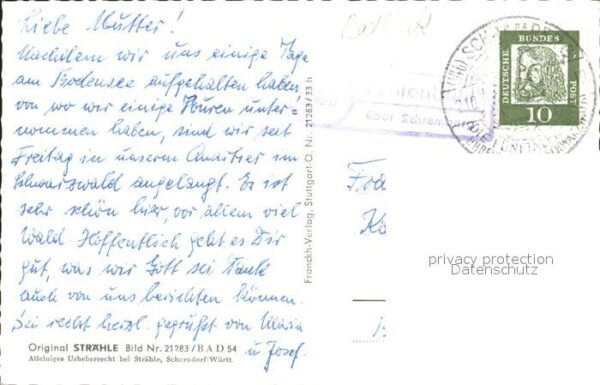 Liebe Mutter!
Nachdem wir uns einige Tage
am Bodensee aufgehalten haben
von wo wir einige Touren unter-
nommen haben, sind wir seit
Freitag in unserem Quartier im
Schwarzwald angelangt. Es ist
sehr schön hier, vor allem viel
Wald. Hoffentlich geht es Dir
gut, was wir Gott sei Dank
auch von uns berichten können.
Sei recht herzl. gegrüßt von Maria
u Josef.
Original STRÄHLE Bild Nr. 21283/BAD 54
Alleiniges Urheberrecht bei Strähle, Schorndorf/Württ.
Franckh-Verlag, Stuttgart-O. Nr. 21283/33 h
über Schramberg
DEUTSCHE BUNDES POST
10
privacy protection
Datenschutz